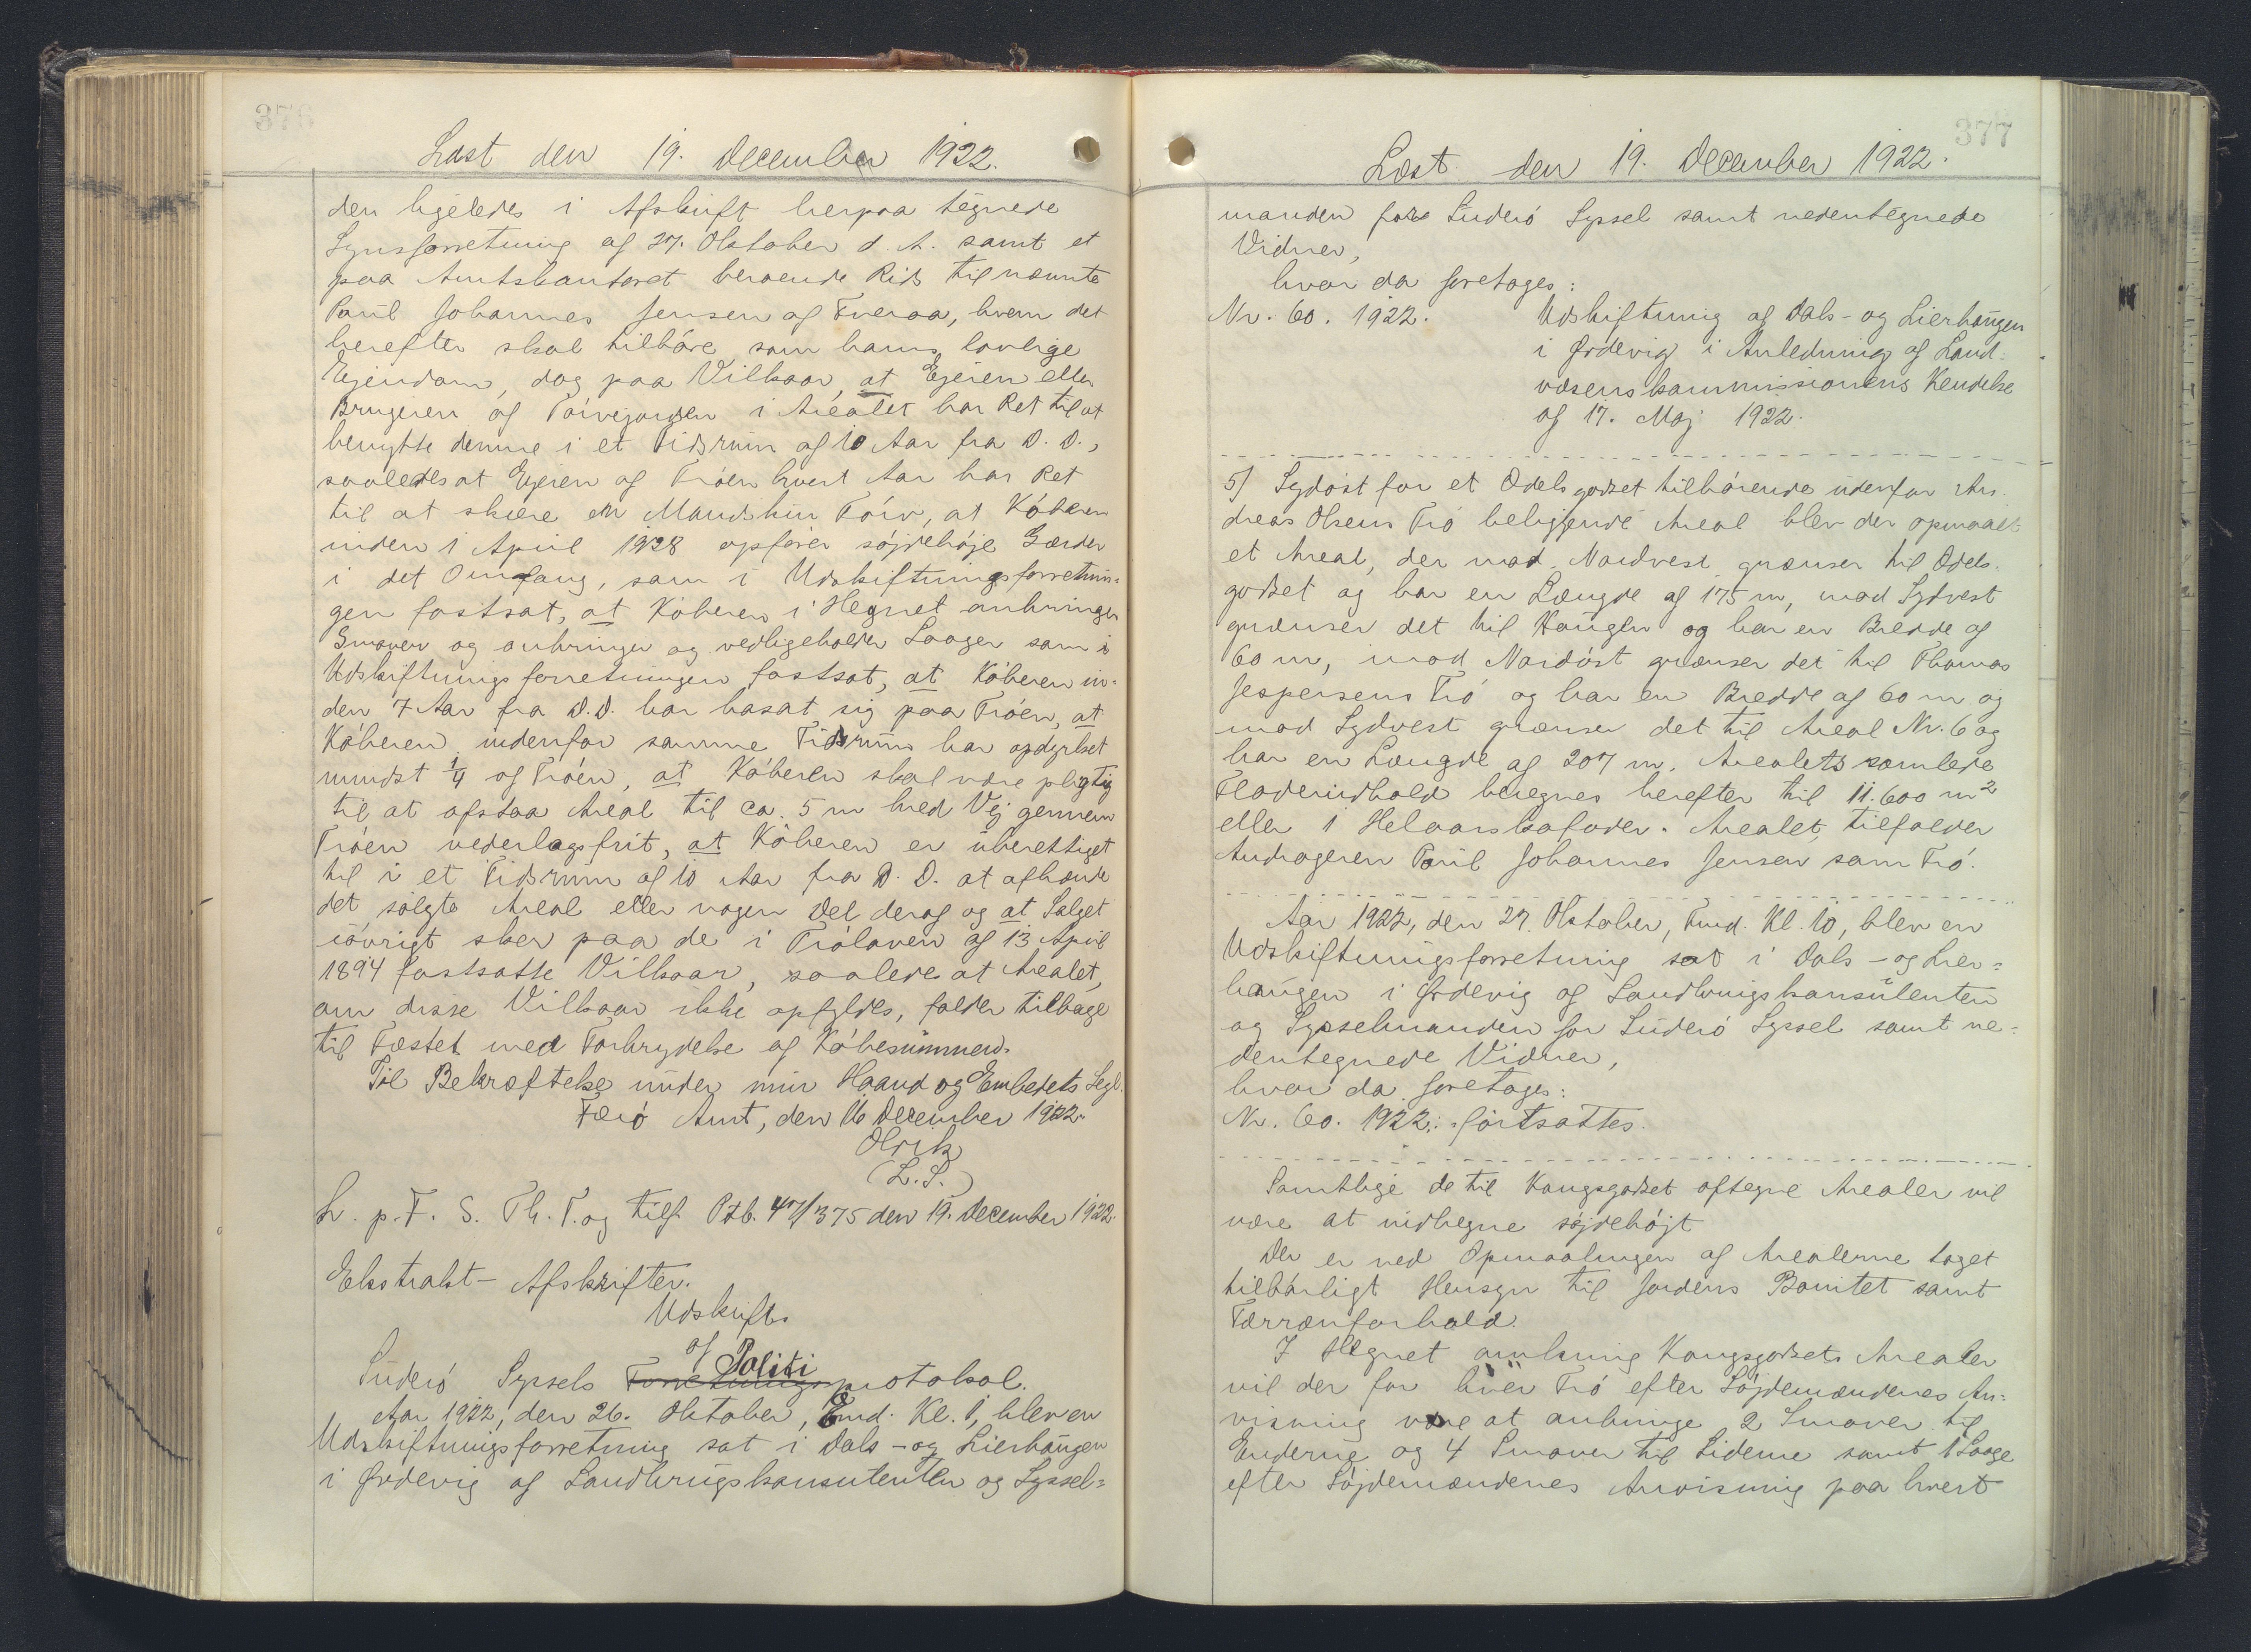 376
Læst den 19. December 1922.
den ligeledes i Afskrift herpaa tegnede
Synsforretning af 27. Oktober d. A. samt et
paa Amtskontoret beroende Rids til nævnte
Poul Johannes Jensen af Tveraa, hvem det
herefter skal tilhøre som hans lovlige
Ejendom, dog paa Vilkaar, at Ejeren eller
Brugeren af Tørvejorden i Arealet har Ret til at
benytte denne i et Tidsrum af 10 Aar fra D. D.,
saaledes at Ejeren af Trøen hvert Aar har Ret
til at skære en Mandskur Tørv, at Køberen
inden 1 April 1928 opfører søjdehøje Gærder
i det Omfang, som i Udskiftningsforretnin-
gen fastsat, at Køberen i Hegnet anbringer
Smover og anbringer og vedligeholder Laager som i
Udskiftningsforretningen fastsat, at Køberen in-
den 7 Aar fra D.D. har bosat sig paa Trøen, at
Køberen indenfor samme Tidsrum har opdyrket
mindst 1/4 af Trøen, at Køberen skal være pligtig
til at afstaa Areal til ca. 5 m bred Vej gennem
Trøen vederlagsfrit, at Køberen er uberettiget
til i et Tidsrum af 10 Aar fra D. D. at afhænde
det solgte Areal eller nogen Del deraf og at Salget
iøvrigt sker paa de i Trøloven af 13 April
1894 fastsatte Vilkaar, saalede at Arealet,
om disse Vilkaar ikke opfyldes, falder tilbage
til Fæstet med Forbrydelse af Købesummen.
Til Bekræftelse under min Haand og Embedets Segl.
Færø Amt, den 16 December 1922.
Olrik
(L.S.)
L. p. F. S. Th. T. og tilf. Ptb. 47/375 den 19. December 1922.
Ekstrakt-Afskrifter.
Udskrift
af Politi
Suderø Syssels Forretningsprotokol.
Aar 1922, den 26. Oktober, Emd. Kl. 1, blev en
Udskiftningsforretning sat i Dals- og Lierhaugen
i Ørdevig af Landbrugskonsulenten og Syssel-
377
Læst den 19. December 1922.
manden for Suderø Syssel samt nedentegnede
Vidner,
hvor da foretages:
Nr. 60. 1922. Udskiftning af Dals- og Lierhaugen
i Ørdevig i Anledning af Land-
væsenskommissionens Kendelse
af 17. Maj 1922.
5) Sydøst for et Odelsgodset tilhørende udenfor An-
dreas Olsens Trø beliggende Areal blev der opmaalt
et Areal, der mod Nordvest grænser til Odels-
godset og har en Længde af 175 m, mod Sydvest
grænser det til Haugen og har en Bredde af
60 m, mod Nordøst grænser det til Thomas
Jespersens Trø og har en Bredde af 60 m og
mod Sydvest grænser det til Areal Nr. 6 og
har en Længde af 207 m. Arealets samlede
Fladeindhold beregnes herefter til 11.600 m²
eller 1 Helaarskofoder. Arealet tilfalder
Andrageren Poul Johannes Jensen som Trø.
Aar 1922, den 27. Oktober, Fmd. Kl. 10, blev en
Udskiftningsforretning sat i Dals- og Lier-
haugen i Ørdevig af Landbrugskonsulenten
og Sysselmanden for Suderø Syssel samt ne-
dentegnede Vidner,
hvor da foretages:
Nr. 60. 1922: fortsattes.
Samtlige de til Kongsgodset aftegne Arealer vil
være at indhegne søjdehøjt
Der er ved Opmaalingen af Arealerne taget
tilbørligt Hensyn til Jordens Bonitet samt
Terrænforhold.
I Hegnet omkring Kongsgodsets Arealer
vil der for hver Trø efter Søjdemændenes An-
visning være at anbringe 2 Smover til
Enderne og 4 Smover til Siderne samt 1 Laage
efter Søjdemændenes Anvisning paa hvert